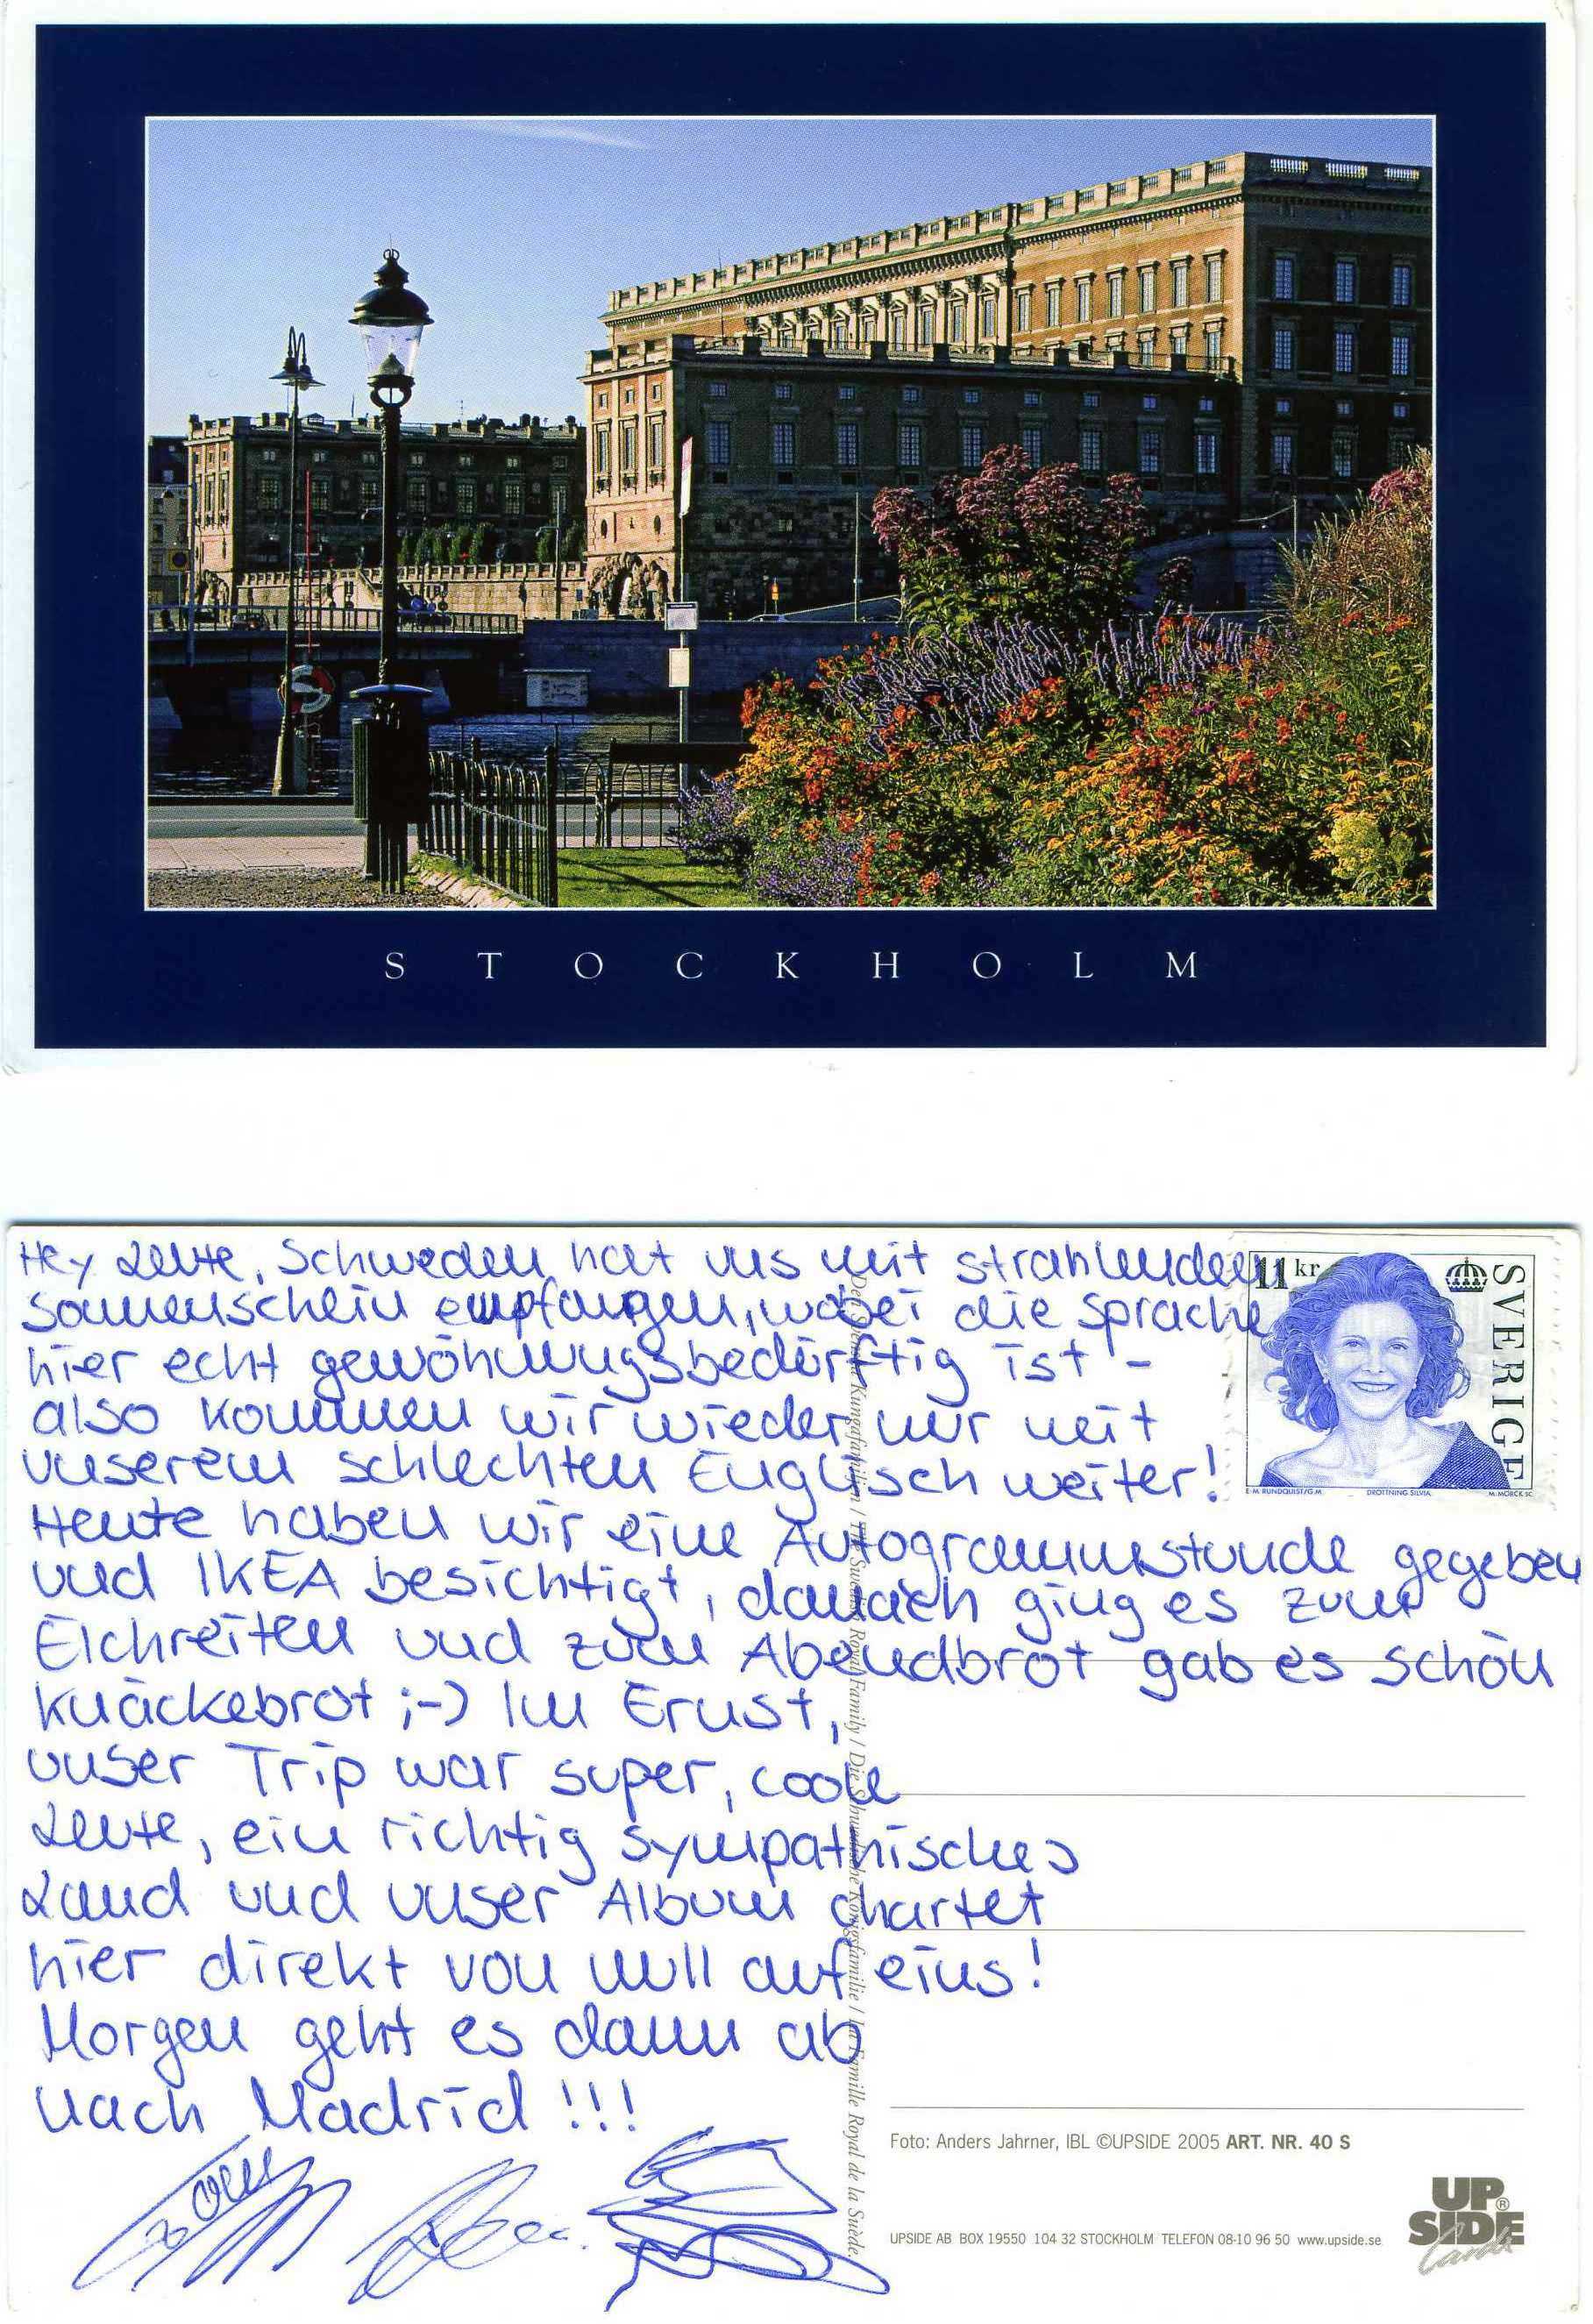 STOCKHOLM
Hey Leute, Schweden hat uns mit strahlenden
Sonnenschein empfangen, wobei die Sprache
hier echt gewöhnungsbedürftig ist -
also kommen wir wieder nur mit
unserem schlechten Englisch weiter!
Heute haben wir eine Autogrammstunde gegeben
und IKEA besichtigt, danach ging es zum
Elchreiten und zum Abendbrot gab es schön
Knäckebrot ;-) Im Ernst,
unser Trip war super, coole
Leute, ein richtig sympathisches
Land und unser Album chartet
hier direkt von null auf eins!
Morgen geht es dann ab
nach Madrid!!!
11 kr
SVERIGE
E-M. RUNDQUIST/G.M.
DROTTNING SILVIA
M. MÖRCK SC
Den Svenska Kungafamiljen / The Swedish Royal Family / Die Schwedische Königsfamilie / La Famille Royal de la Suède.
Foto: Anders Jahrner, IBL ©UPSIDE 2005 ART. NR. 40 S
UPSIDE AB BOX 19550 104 32 STOCKHOLM TELEFON 08-10 96 50 www.upside.se
UP
SIDE®
Cards